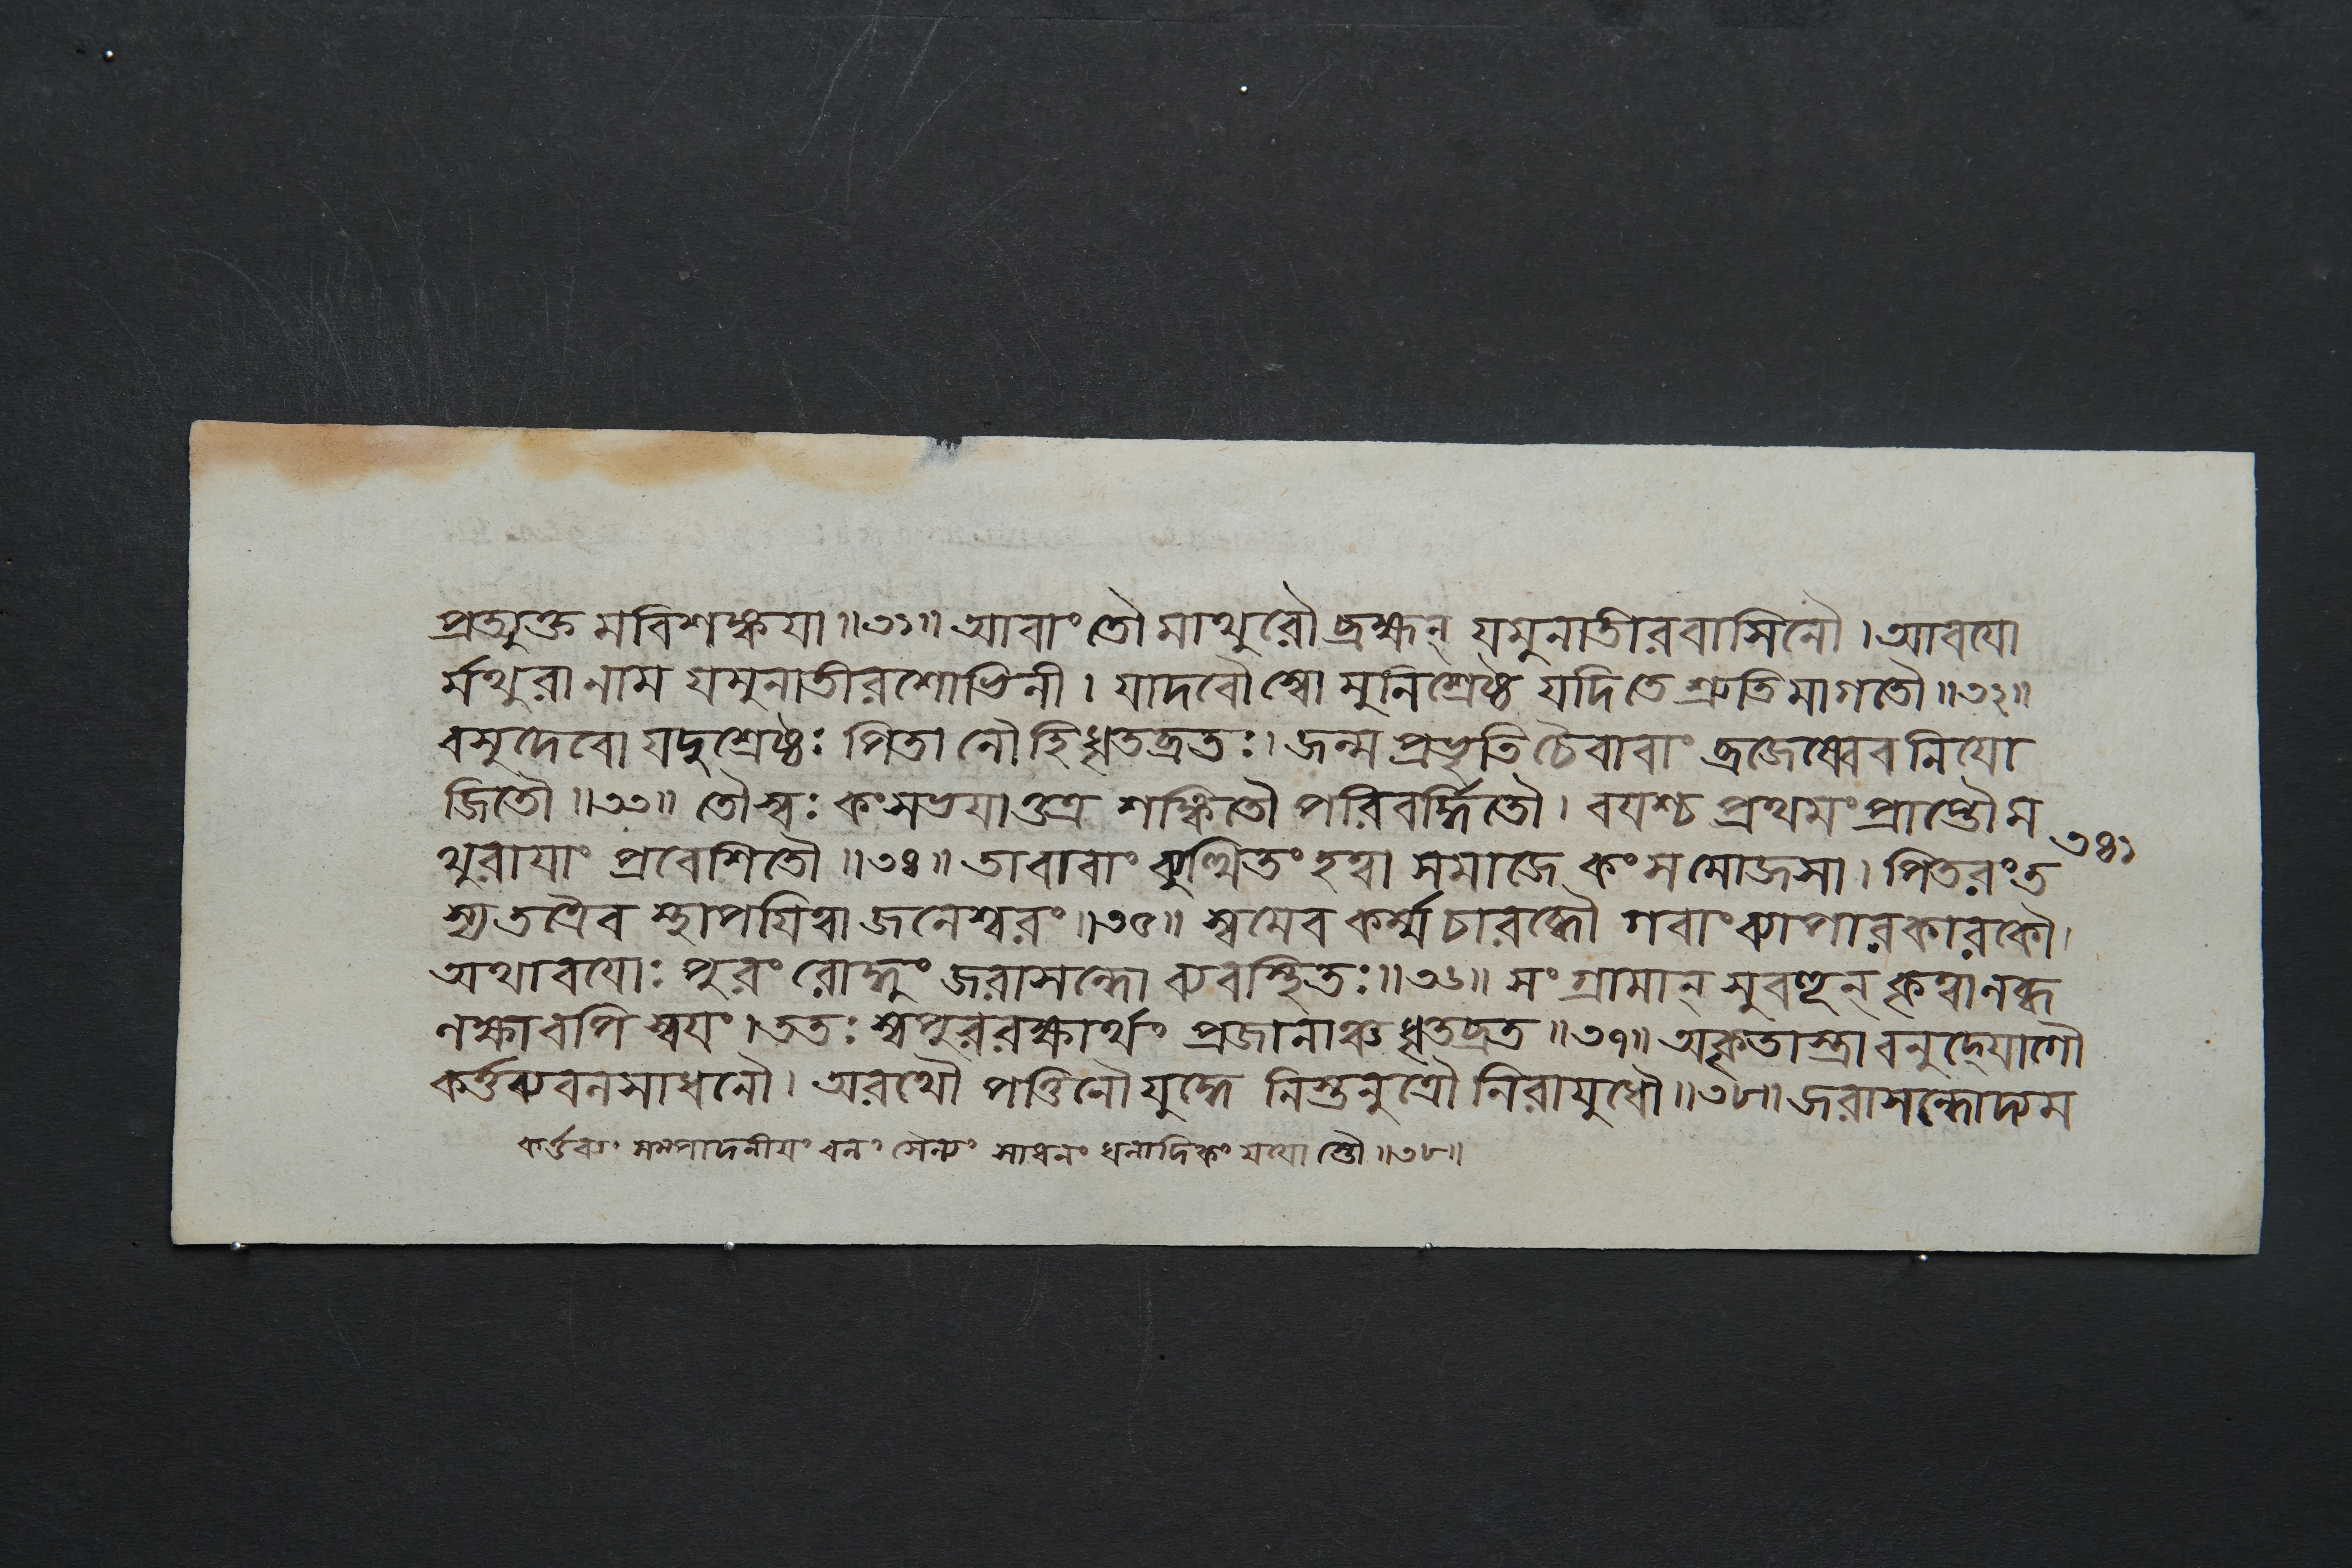 প্রত্যুক্তমবিশঙ্কয়া॥৩১॥ আবাং তৌ মাথুরৌ ব্রহ্মন্ যমুনাতীরবাসিনৌ। আবযো
র্মথুরা নাম যমুনাতীরশোভিনী। যাদবৌ স্বো মুনিশ্রেষ্ঠ যদি তে শ্রুতিমাগতৌ॥৩২॥
বসুদেবো যদুশ্রেষ্ঠঃ পিতা নৌ হি ধৃতব্রতঃ। জন্ম প্রভৃতি চৈবাবাং ব্রজেষ্বেব নিযো
জিতৌ॥৩৩॥ তৌ স্বঃ কংসভযাত্তত্র শঙ্কিতৌ পরিবর্দ্ধিতৌ। বযশ্চ প্রথমং প্রাপ্তৌ ম
থুরাযাং প্রবেশিতৌ॥৩৪॥ তাবাবাং ব্যুত্থিতং হত্বা সমাজে কংসমোজসা। পিতরং ত
স্য তত্রৈব স্থাপযিত্বা জনেশ্বরং॥৩৫॥ স্বমেব কর্ম্ম চারব্ধৌ গবাং ব্যাপারকারকৌ।
অথাবযোঃ পুরং রোদ্ধুং জরাসন্ধো ব্যবস্থিতঃ॥৩৬॥ সংগ্রামান্ সুবহূন্ কৃত্বা লব্ধ
লক্ষাবপি স্বযং। ততঃ স্বপুররক্ষার্থং প্রজানাঞ্চ ধৃতব্রত॥৩৭॥ অকৃতাস্ত্রাবনুদ্যোগৌ
কর্ত্তব্যবলসাধনৌ। অরথৌ পত্তিনৌ যুদ্ধে নিস্তনুত্রৌ নিরাযুধৌ॥৩৮॥ জরাসন্ধোদ্যম
কর্ত্তব্যং সম্পাদনীযং বলং সৈন্যং সাধনং ধনাদিকং যযো স্তৌ॥৩৮॥
৩৪১